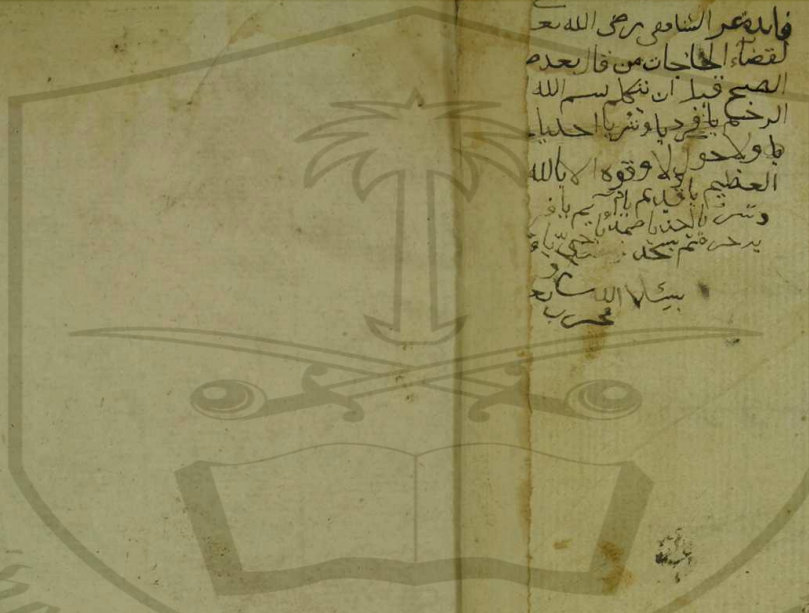 فايدة عن الشافعي رضي الله تعـ
لقضاء الحاجات من قال بعد صـ
الصبح قبل ان يتكلم بسم الله
الرحمن يا فرد يا وتر يا احد يا
ولا حول ولا وقوه الا بالله
العظيم يا قديم يا يا فر
وتر يا احد يا صمد يا حي يا
ثم يسجد
يسئل الله
مجرب